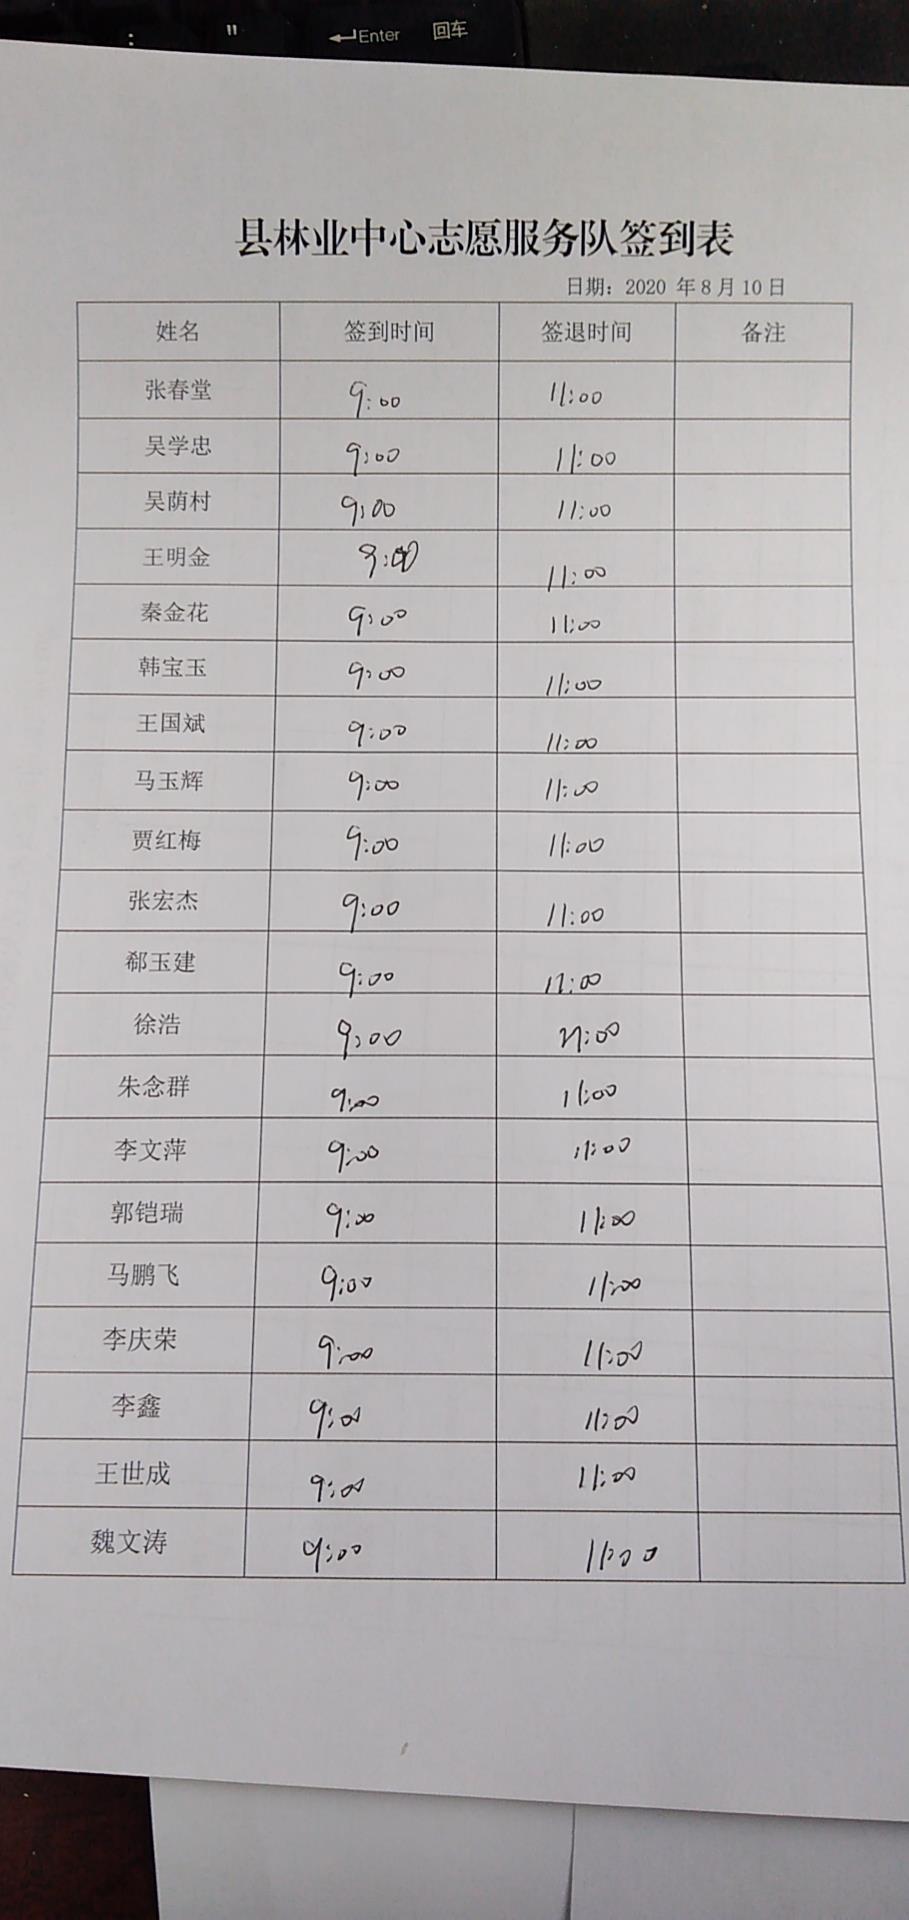 : " ↵Enter 回车
县林业中心志愿服务队签到表
日期：2020 年8月10日
姓名 签到时间 签退时间 备注
张春堂 9:00 11:00
吴学忠 9:00 11:00
吴荫村 9:00 11:00
王明金 9:00 11:00
秦金花 9:00 11:00
韩宝玉 9:00 11:00
王国斌 9:00 11:00
马玉辉 9:00 11:00
贾红梅 9:00 11:00
张宏杰 9:00 11:00
郗玉建 9:00 11:00
徐浩 9:00
朱念群 9:00 11:00
李文萍 9:00 11:00
郭铠瑞 9:00 11:00
马鹏飞 9:00 11:00
李庆荣 9:00 11:00
李鑫 9:00 11:00
王世成 9:00 11:00
魏文涛 9:00 11:00